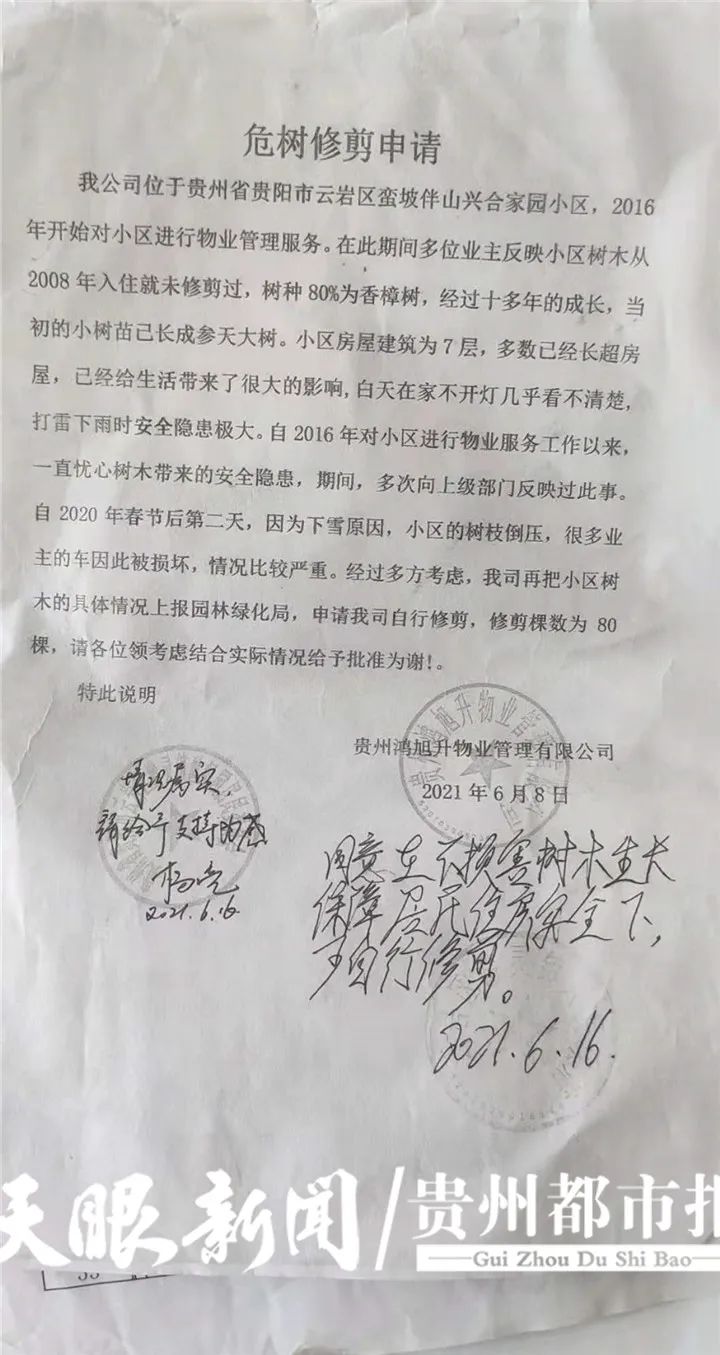 危树修剪申请
我公司位于贵州省贵阳市云岩区蛮坡伴山兴合家园小区，2016
年开始对小区进行物业管理服务。在此期间多位业主反映小区树木从
2008 年入住就未修剪过，树种 80%为香樟树，经过十多年的成长，当
初的小树苗己长成参天大树。小区房屋建筑为 7 层，多数已经长超房
屋，已经给生活带来了很大的影响,白天在家不开灯几乎看不清楚,
打雷下雨时安全隐患极大。自 2016 年对小区进行物业服务工作以来，
一直忧心树木带来的安全隐患，期间，多次向上级部门反映过此事。
自 2020 年春节后第二天，因为下雪原因，小区的树枝倒压，很多业
主的车因此被损坏，情况比较严重。经过多方考虑，我司再把小区树
木的具体情况上报园林绿化局，申请我司自行修剪，修剪棵数为 80
棵，请各位领考虑结合实际情况给予批准为谢!。
特此说明
贵州鸿旭升物业管理有限公司
2021 年 6 月 8 日
情况属实，
请给予支持为感
2021.6.16
同意在不损害树木生长
保障居民住房安全下，
可自行修剪。
2021.6.16.
天眼新闻/贵州都市报
Gui Zhou Du Shi Bao